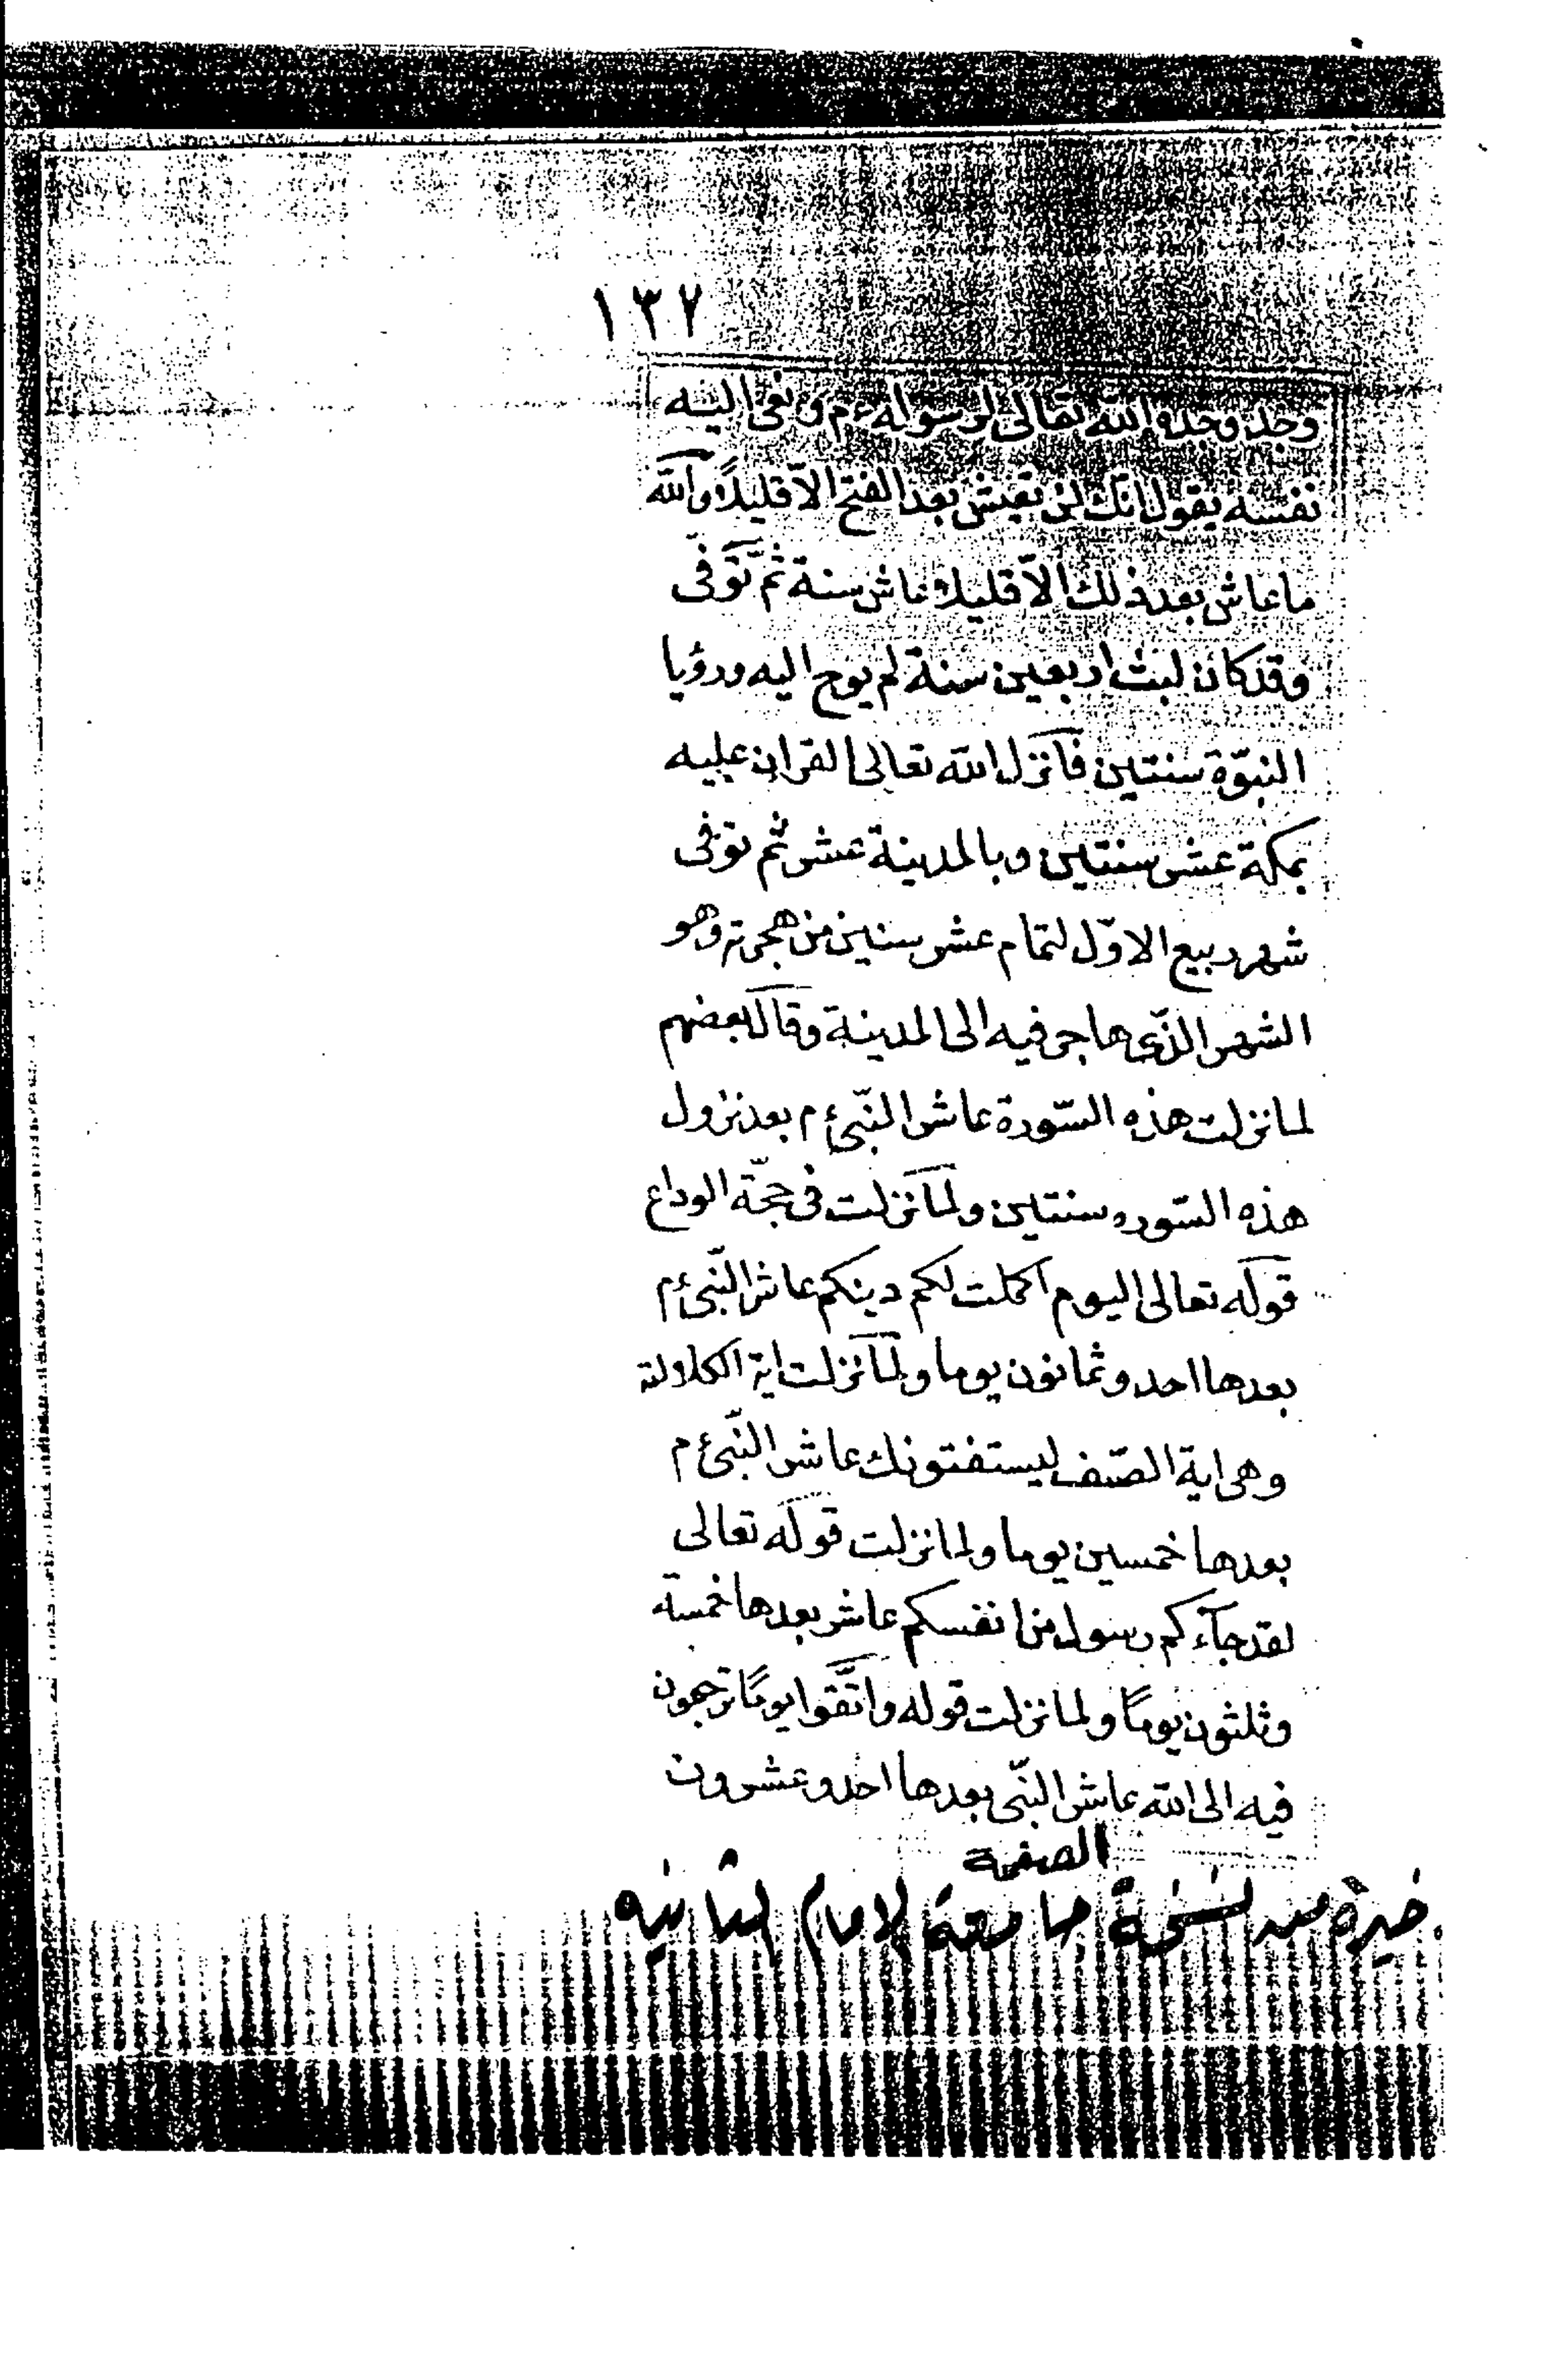 ١٣٧
وجد وجده الله تعالى لرسوله ءم ونعى اليه
نفسه يقول انك لن تعيش بعد الفتح الّا قليلًا والله
ما عاش بعد ذلك الّا قليلا عاش سنة ثمّ توفّى
وقد كان لبث اربعين سنة لم يوح اليه ورؤيا
النبوّة سنتين فانزل الله تعالى القران عليه
بمكة عشر سنتين وبالمدينة عشر ثم توفى
شهر ربيع الاوّل لتمام عشر سنين من هجرته وهو
الشهر الذّى هاجر فيه الى المدينة وقال بعضهم
لما نزلت هذه السّورة عاش النّبى ءم بعد نزول
هذه السّوره سنتين ولما نزلت فى حجّة الوداع
قوله تعالى اليوم اكملت لكم دينكم عاش النّبى ءم
بعدها احد وثمانون يوما ولما نزلت اية الكلالة
وهى اية الصّيف ليستفتونك عاش النّبى ءم
بعدها خمسين يوما ولما نزلت قوله تعالى
لقد جآءكم رسول من انفسكم عاش بعدها خمسة
وثلثون يومًا ولما نزلت قوله واتّقوا يومًا ترجعون
فيه الى الله عاش النّبى بعدها احد وعشرون
الصفحة
الأخيرة من نسخة جامعة الامام الثانيه